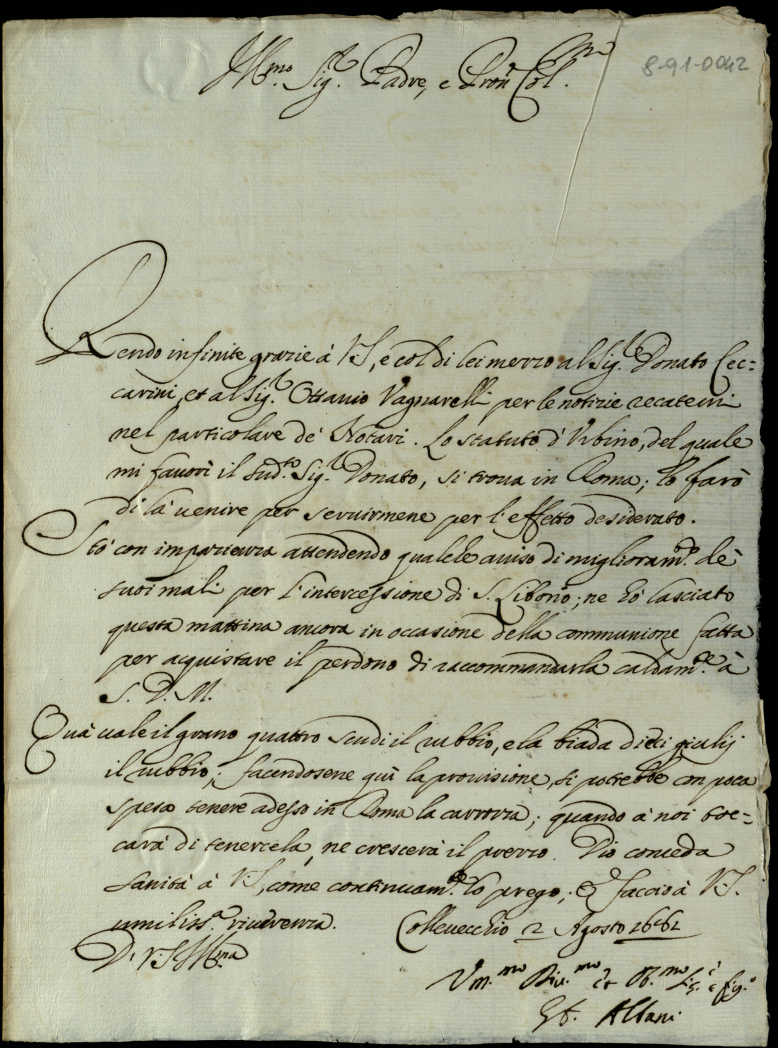 8-91-0042
Ill.mo Sig.r Padre, e Pron Col.mo
Rendo infinite grazie à V.S., e col di lei mezzo al Sig.r Donato Cec=
carini, et al Sig.r Ottavio Vagnarelli per le notizie recatemi
nel particolare de' Notari. Lo statuto d'Urbino, del quale
mi favorì il sud.to Sig.r Donato, si trova in Roma; lo farò
di là venire per servirmene per l'effetto desiderato.
Stò con impazienza attendendo qualche aviso di miglioram.to de'
suoi mali per l'intercessione di S. Liborio; ne hò lasciato
questa mattina ancora in occasione della communione fatta
per acquistare il perdono di raccommandarla caldam.te à
S. D. M.
Quà vale il grano quattro scudi il rubbio, e la biada dieci giulij
il rubbio; facendosene quì la provisione, si potrebbe con poca
spesa tenere adesso in Roma la carrozza; quando à noi toc=
carà di tenercela, ne crescerà il prezzo. Dio conceda
sanità à V.S., come continuam.te lo prego; et faccio à V.S.
umiliss.a riverenza. Collevecchio 2 Agosto 1661
Di V.S. Ill.ma
Um.mo Div.mo et Ob.mo Se. e fig.o
Albani